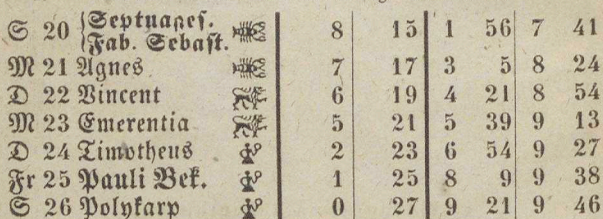 S 20 {Septuages. 8 15 1 56 7 41
{Fab. Sebast.
M 21 Agnes 7 17 3 5 8 24
D 22 Vincent 6 19 4 21 8 54
M 23 Emerentia 5 21 5 39 9 13
D 24 Timotheus 2 23 6 54 9 27
Fr 25 Pauli Bek. 1 25 8 9 9 38
S 26 Polykarp 0 27 9 21 9 46